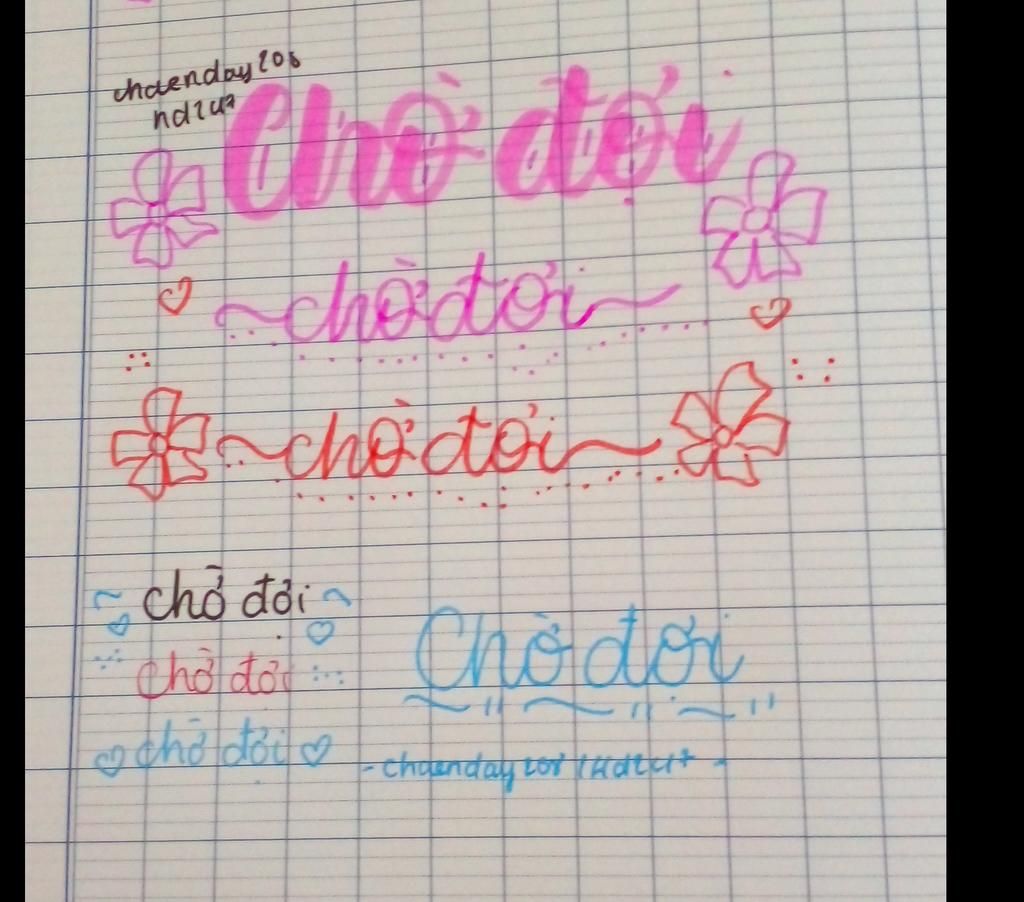 chaenday208
nd2u7
Chờ đợi
chờ đợi
chờ đợi
chờ đợi
Chờ đợi
chờ đợi
chờ đợi
-chaenday208